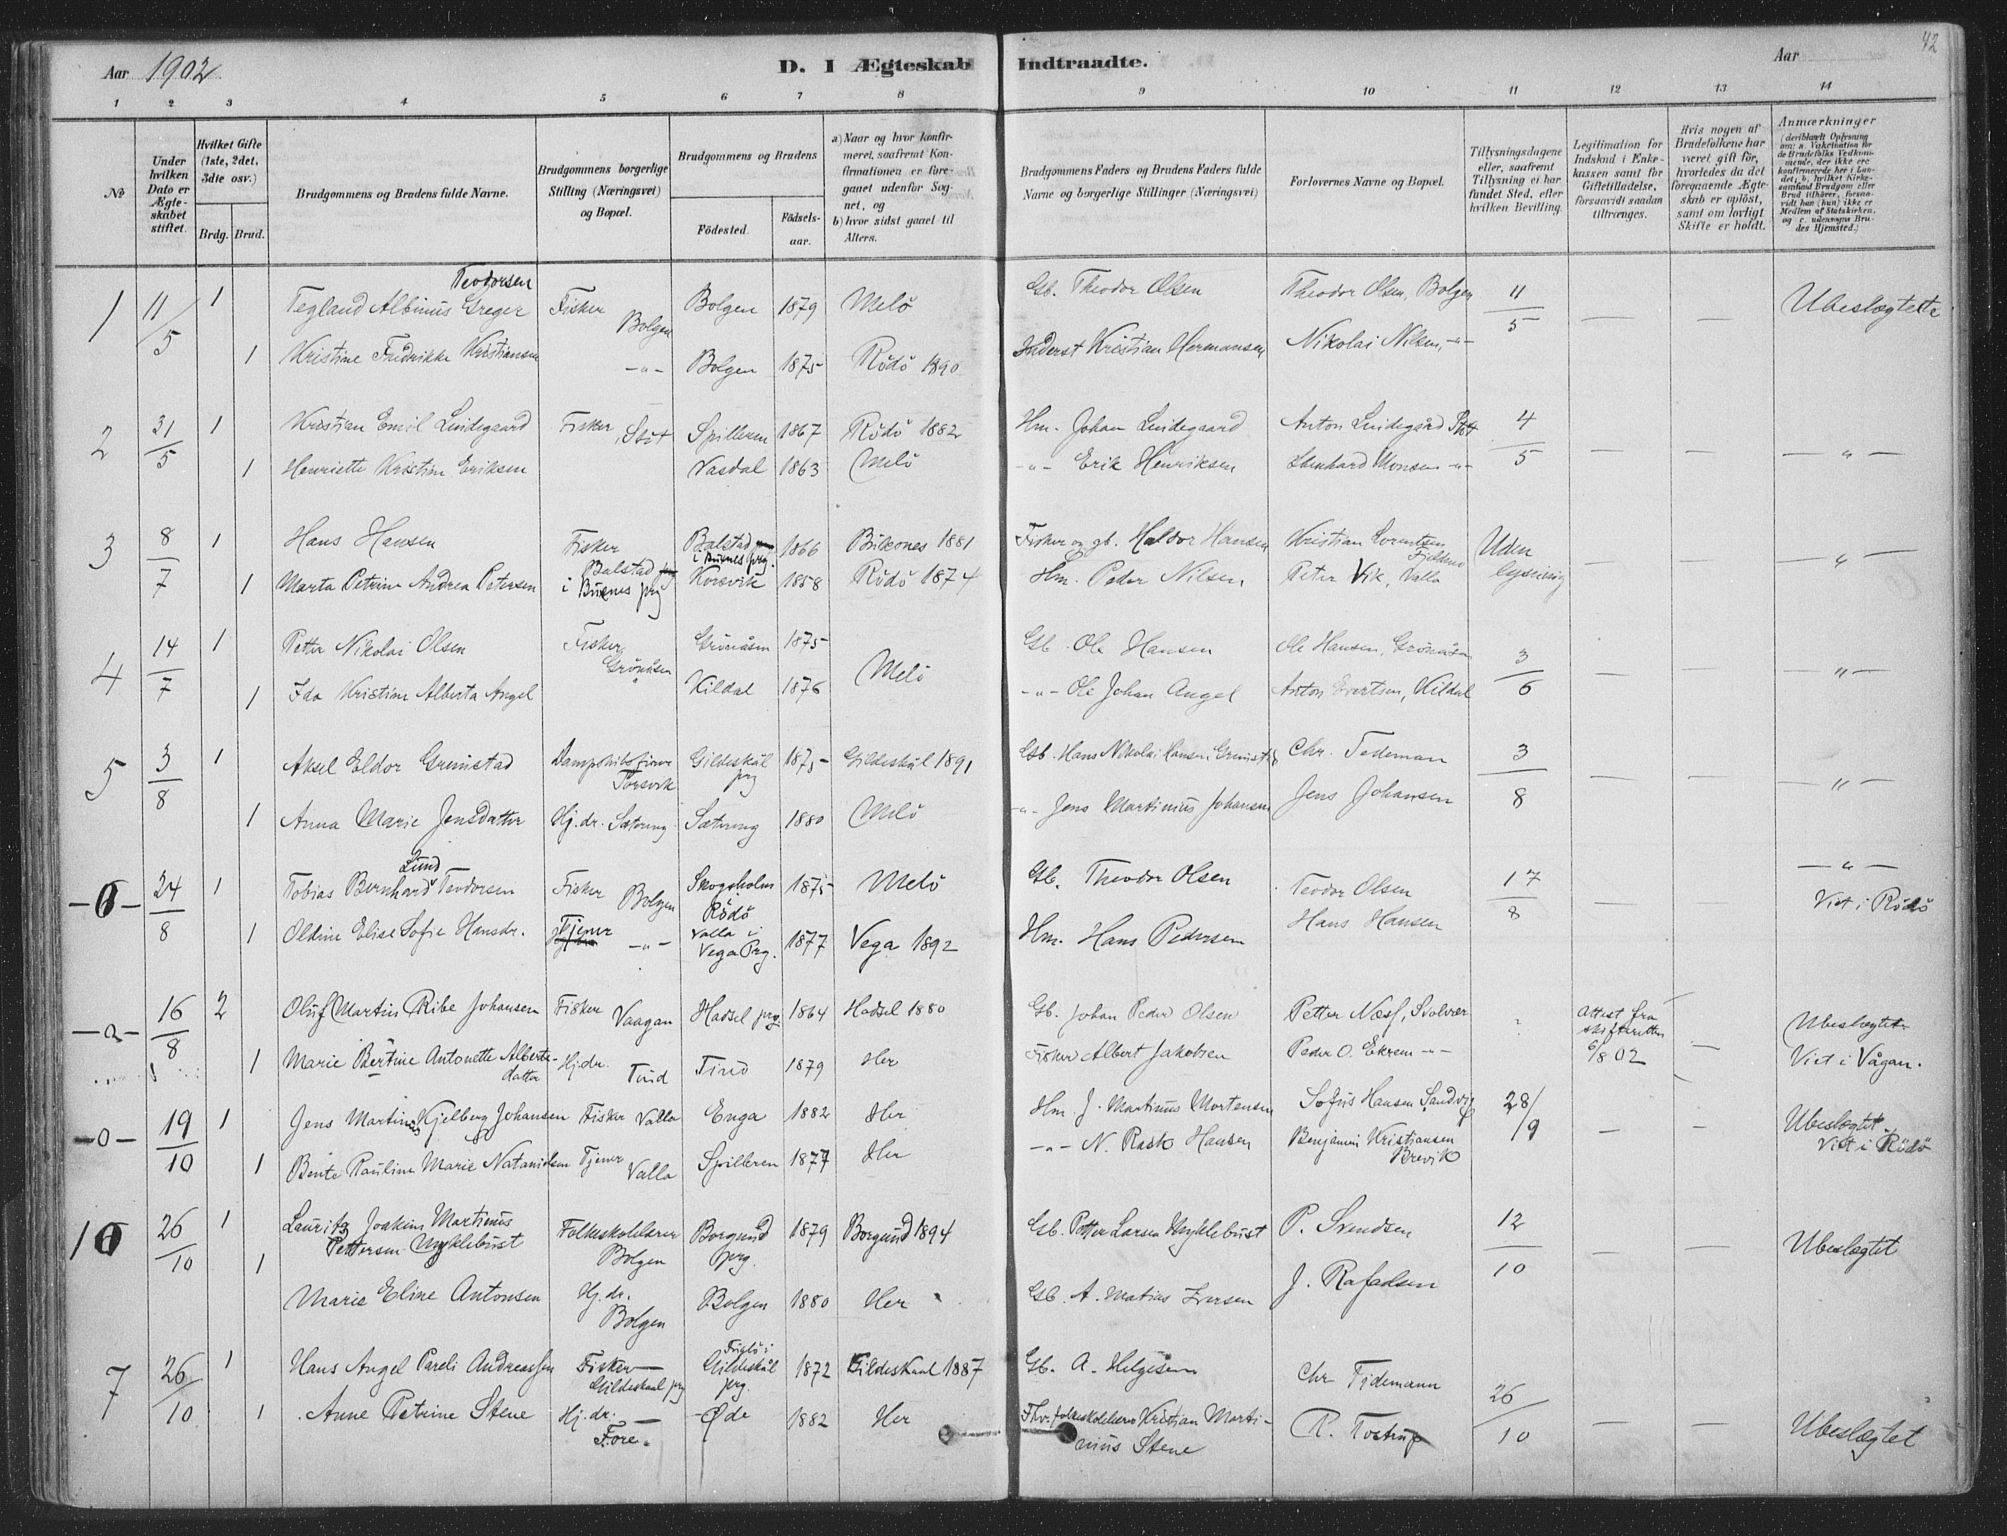 42
Aar 1902
D. I Ægteskab Indtraadte.
Aar
1 2 3 4 5 6 7 8 9 10 11 12 13 14
No
Under hvilken Dato er Ægteskabet stiftet.
Hvilket Gifte (1ste, 2det, 3die osv.)
Brdg. Brud.
Brudgommens og Brudens fulde Navne.
Brudgommens borgerlige Stilling (Næringsvei) og Bopæl.
Brudgommens og Brudens
Fødested.
Fødselsaar.
a) Naar og hvor konfirmeret, saafremt Konfirmationen er foregaaet udenfor Sognet, og
b) hvor sidst gaaet til Alters.
Brudgommens Faders og Brudens Faders fulde Navne og borgerlige Stillinger (Næringsvei)
Forlovernes Navne og Bopæl.
Tillysningsdagene eller, saafremt Tillysning ei har fundet Sted, efter hvilken Bevilling.
Legitimation for Indskud i Enkekassen samt for Giftetilladelse, forsaavidt saadan tiltrænges.
Hvis nogen af Brudefolkene har været gift før, hvorledes da det foregaaende Ægteskab er opløst, samt om lovligt Skifte er holdt.
Anmærkninger
(deriblandt Oplysning om: a. Vakcination for de Brudefolks Vedkommende, der ikke ere konfirmerede her i Landet; b. hvilket Kirkesamfund Brudgom eller Brud tilhører, forsaavidt han (hun) ikke er Medlem af Statskirken, og c. udensogns Brudes Hjemsted.)
1 11/5 1 Tegland Albinus Greger Teodorsen Fisker Bolgen Bolgen 1879 Melö Gb. Theodor Olsen Theodor Olsen, Bolgen 11/5 — — Ubeslægtede
1 Kristine Fredrikke Kristiansen -"- Bolgen 1875 Rödö 1890 Inderst Kristian Hermansen Nikolai Nilsen, -"-
2 31/5 1 Kristian Emil Lindegaard Fisker, Stöt Spilleren 1867 Rödö 1882 Hm. Johan Lindegaard Anton Lindegård Stöt 4/5 — — — " —
1 Henriette Kristine Eriksen Vasdal 1863 Melö -"- Erik Henriksen Monsen -"-
3 8/7 1 Hans Hansen Fisker Balstad i Buknes prg Balstad i Buknes prg. 1866 Buksnes 1881 Fisker og gb. Haldor Hansen Kristian Lorentzen Uden lysning — — — " —
1 Marta Petrine Andrea Petersen Korsvik 1858 Rödö 1874 Hm. Peder Nilsen Peter Vik, Valla
4 14/7 1 Petter Nikolai Olsen Fisker Grönåsen Grönåsen 1875 Melö Gb. Ole Hansen Ole Hansen, Grönåsen 3/6 — — — " —
1 Ida Kristine Alberta Angel Kildal 1876 -"- Ole Johan Angel Anton Evertsen, Kildal
5 3/8 1 Aksel Eldor Grimstad Torsvik Gildeskål prg 1875 Gildeskål 1891 Gb. Hans Nikolai Hansen Grimstad Chr. Tedeman 3/8 — — — " —
1 Anna Marie Jensdatter Hj.dr. Sætering Sætering 1880 Melö -"- Jens Martinius Johansen Jens Johansen
—6— 24/8 1 Tobias Bernhard Lund Teodorsen Fisker Bolgen Skogsholm Rödö 1875 Melö Gb. Theodor Olsen Teodor Olsen 17/8 — — " — Viet i Rödö
1 Oldine Elise Sofie Hansdr. Tjener -"- Valla i Vega Prg. 1877 Vega 1892 Hm. Hans Pedersen Hans Hansen
—o— 16/8 2 Oluf Martin Ribe Johansen Fisker Vaagan Hadsel prg 1864 Hadsel 1880 Gb. Johan Peder Olsen Petter Næss, Svolvær Attest fra skifteretten 6/8 02 — Ubeslægtet Viet i Vågan.
1 Marie Bertine Antonette Albertsdatter Hj.dr. Tind Tind 1879 Her Fisker Albert Jakobsen Peder O. Ekrem -"-
—o— 19/10 1 Jens Martinus Kjelberg Johansen Fisker Valla Enga 1882 Her Hm. J. Martinus Mortensen Sofus Hansen Sandvig 28/9 — — Ubeslægtet Viet i Rödö
1 Bente Pauline Marie Natanielsen Tjener Valla Spilleren 1877 Her -"- N. Rask Hansen Benjamin Kristjansen Brevik
16 26/10 1 Lauritz Joakim Martinus Pettersen Myklebust Folkeskolelærer Bolgen Borgund prg. 1879 Borgund 1894 Gb. Petter Larsen Myklebust P. Svendsen 12/10 — — Ubeslægtet
1 Marie Eline Antonsen Hj.dr. Bolgen Bolgen 1880 Her Gb. A. Matias Iversen J. Rafaelsen
7 26/10 1 Hans Angel Pareli Andreassen Fisker Gildeskaal prg i Gildeskål prg. 1872 Gildeskaal 1887 Gb. A. Helgesen Chr Tydemann 26/10 — — Ubeslægtet
1 Anne Petrine Stene Hj.dr. Fore. Øde 1882 Her Fhv. folkeskolelærer Kristian Martinius Stene R. Tostrup